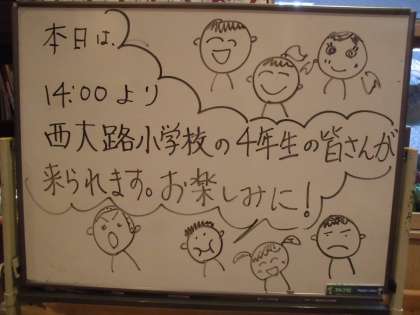 本日は、
14:00より
西大路小学校の4年生の皆さんが
来られます。お楽しみに!